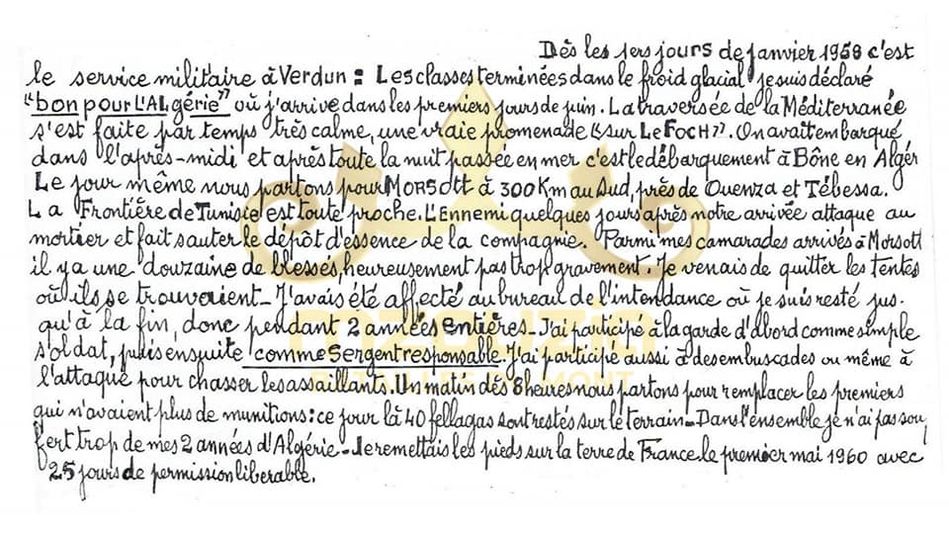 Dès les 1ers jours de janvier 1958 c'est
le service militaire à Verdun : Les classes terminées dans le froid glacial je suis déclaré
"bon pour l'Algérie" où j'arrive dans les premiers jours de juin. La traversée de la Méditerranée
s'est faite par temps très calme, une vraie promenade "sur Le Foch". On avait embarqué
dans l'après-midi et après toute la nuit passée en mer c'est le débarquement à Bône en Algér
Le jour même nous partons pour Morsott à 300 Km au Sud, près de Ouenza et Tébessa.
La Frontière de Tunisie est toute proche. L'Ennemi quelques jours après notre arrivée attaque au
mortier et fait sauter le dépôt d'essence de la compagnie. Parmi mes camarades arrivés à Morsott
il y a une douzaine de blessés, heureusement pas trop gravement. Je venais de quitter les tentes
où ils se trouvaient - J'avais été affecté au bureau de l'intendance où je suis resté jus-
qu'à la fin, donc pendant 2 années entières - J'ai participé à la garde d'abord comme simple
soldat, puis ensuite comme Sergent responsable. J'ai participé aussi à des embuscades ou même à
l'attaque pour chasser les assaillants. Un matin dès 8 heures nous partons pour remplacer les premiers
qui n'avaient plus de munitions : ce jour là 40 fellagas sont restés sur le terrain - Dans l'ensemble je n'ai pas souf
fert trop de mes 2 années d'Algérie - Je remettais les pieds sur la terre de France le premier mai 1960 avec
25 jours de permission liberable.